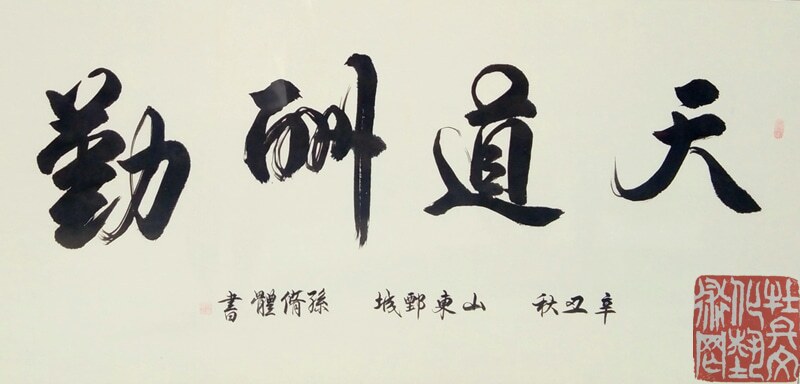 天道酬勤
辛丑秋 山東鄄城 孫脩體書